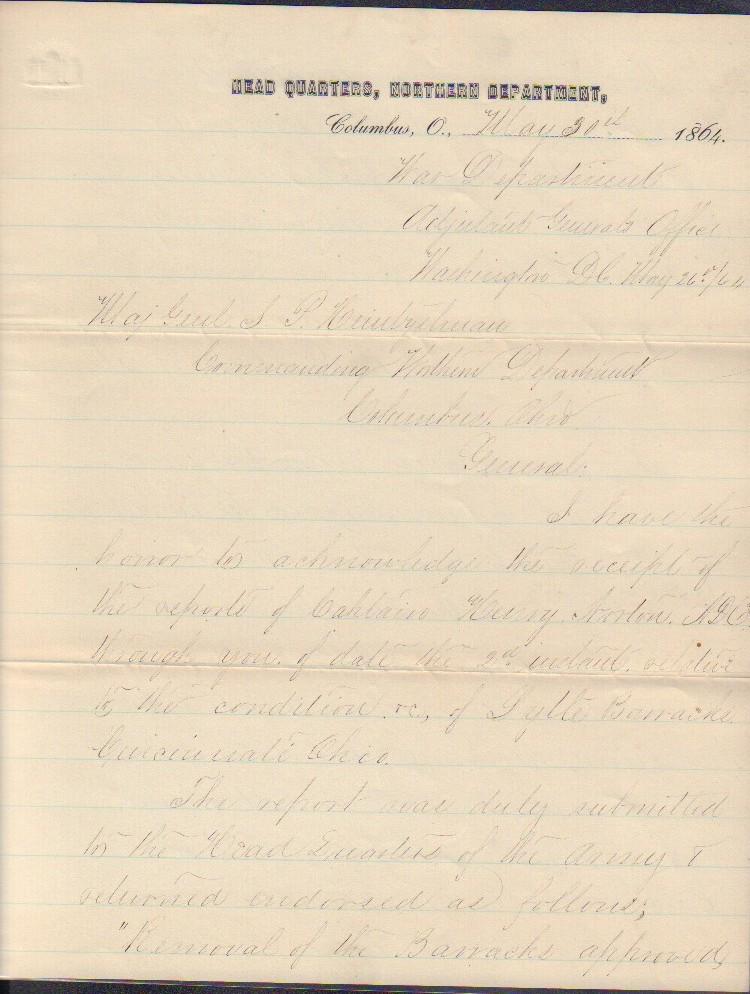 HEAD QUARTERS, NORTHERN DEPARTMENT,
Columbus, O., May 30th 1864.
War Department
Adjutant Generals Office
Washington D.C. May 26th/64
Maj Genl. S. P. Heintzelman
Commanding Northern Department
Columbus. Ohio
General:
I have the
honor to acknowledge the receipt of
the reports of Captain Henry Norton. A.D.C.
through you. of date the 2nd instant. relative
to the condition &c, of Lytle Barracks
Cincinnati Ohio.
The report was duly submitted
to the Head Quarters of the Army &
returned endorsed as follows;
"Removal of the Barracks approved,